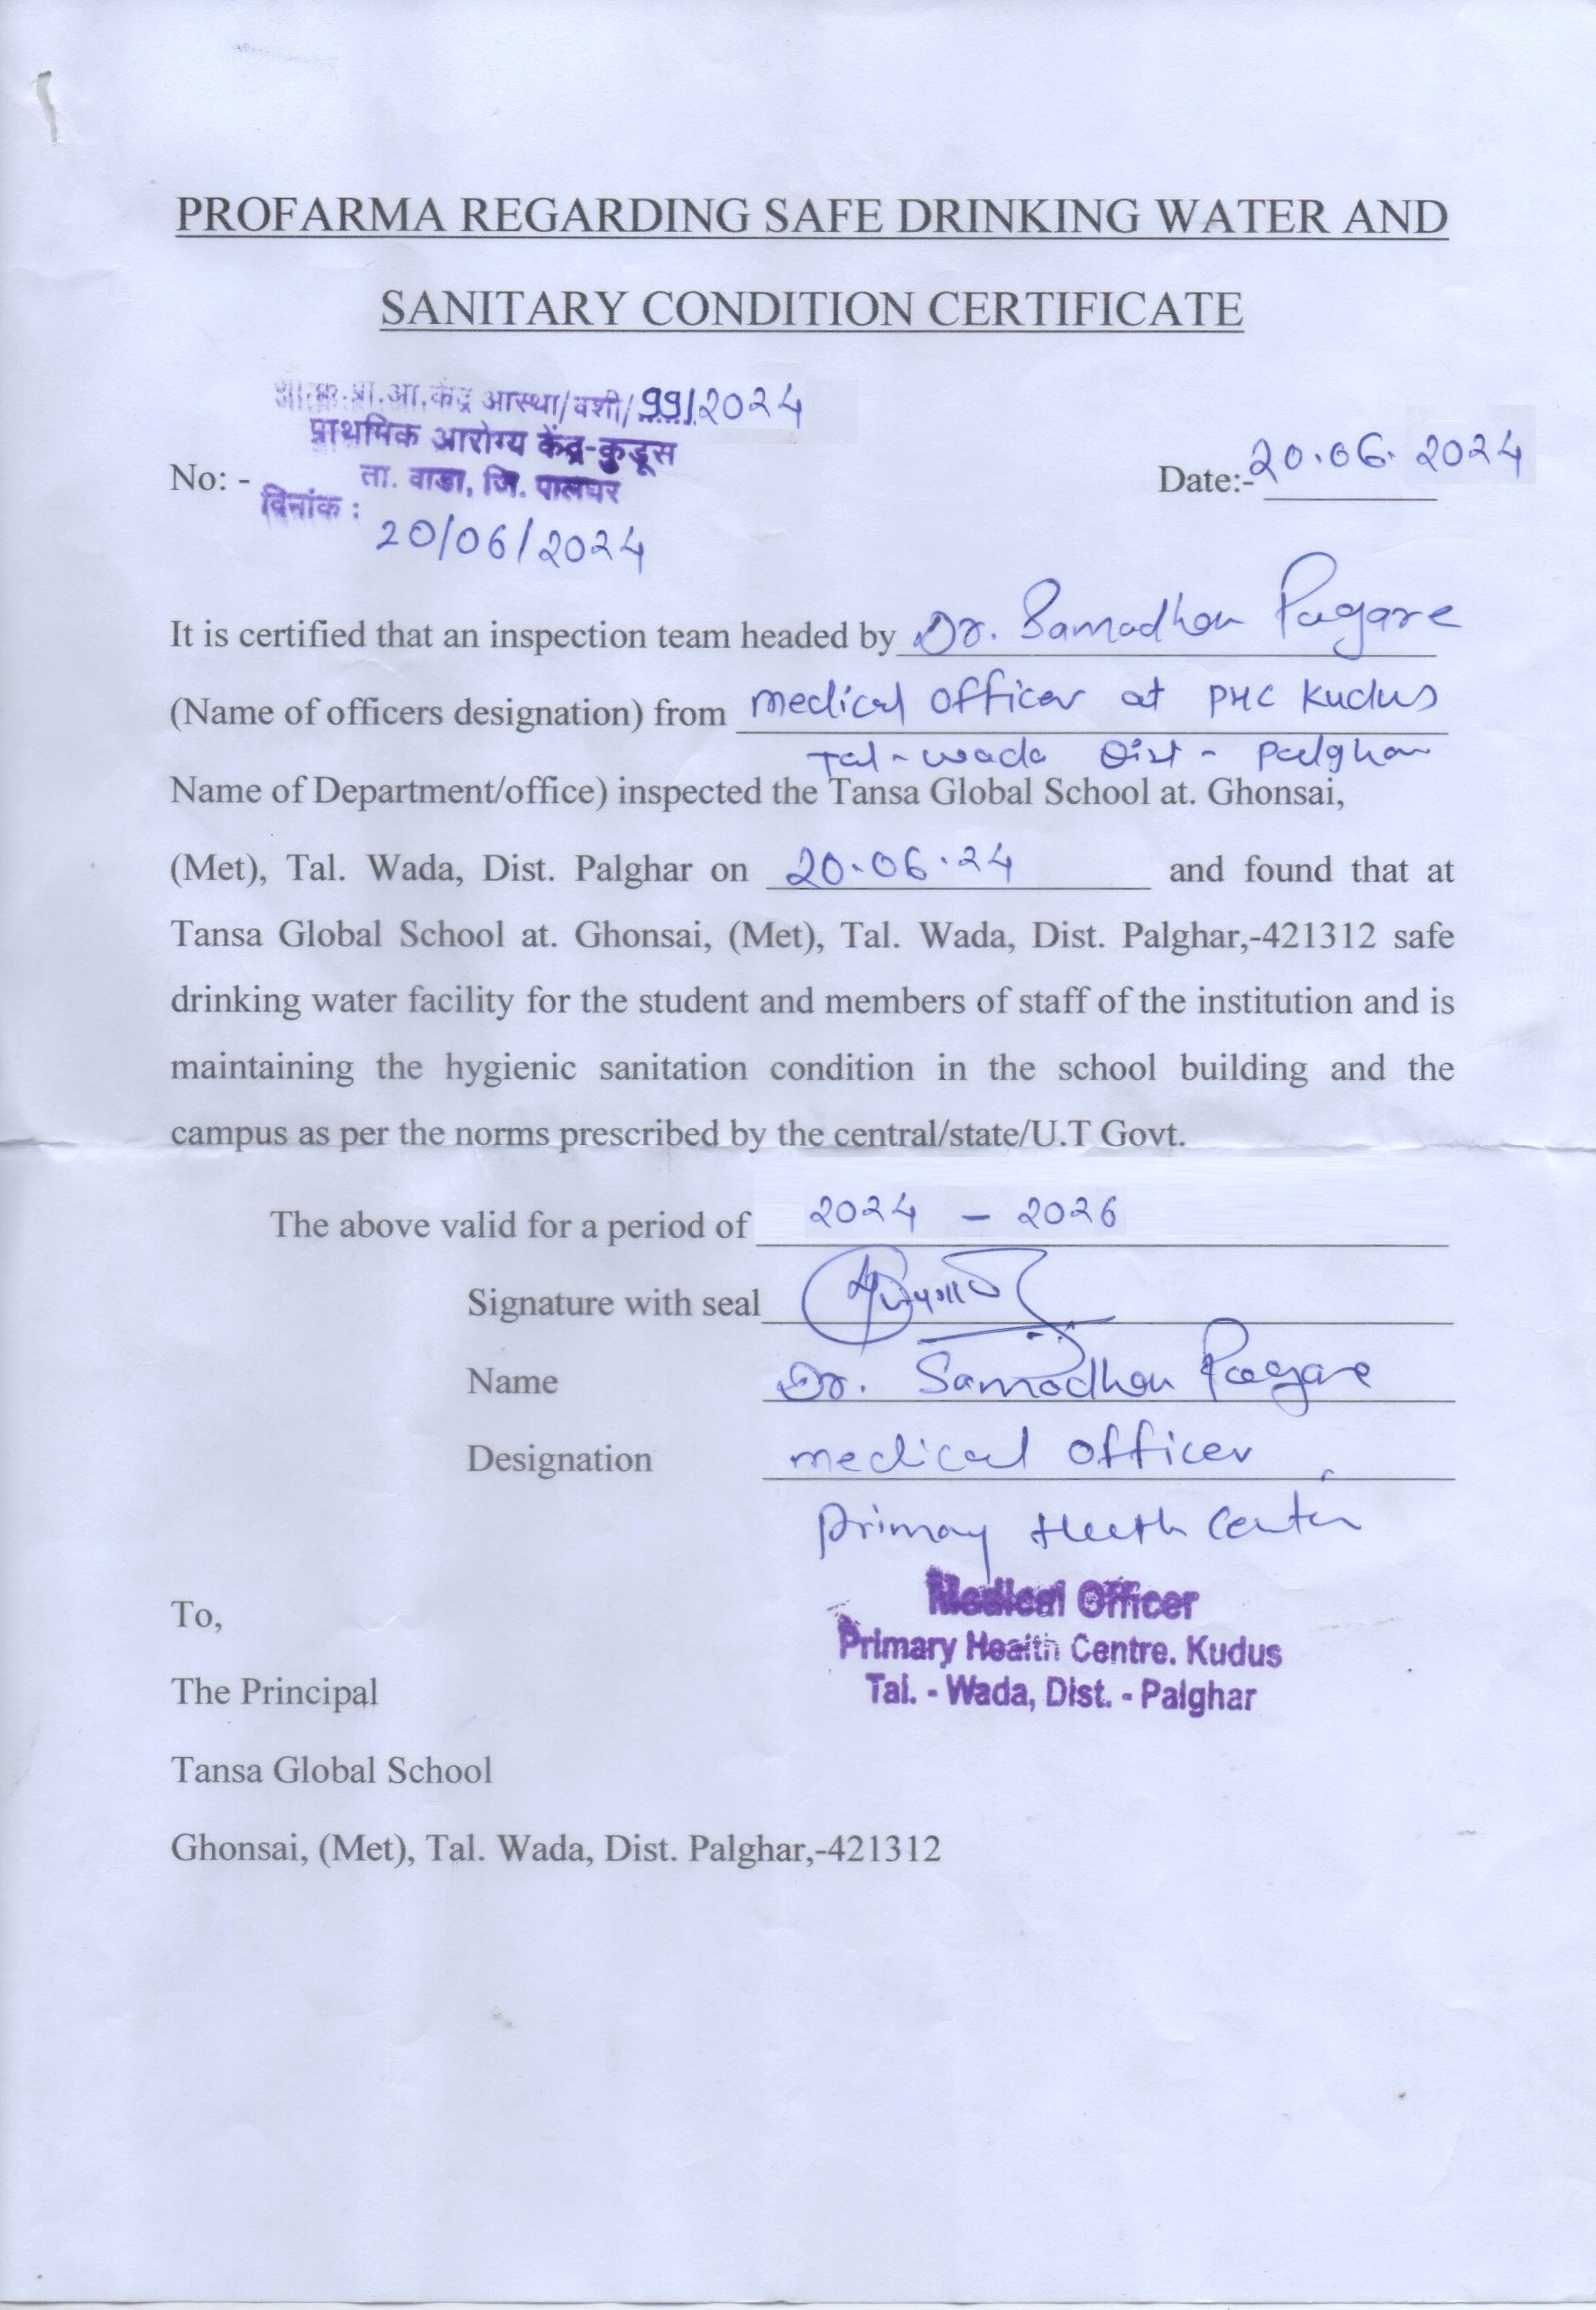 PROFARMA REGARDING SAFE DRINKING WATER AND
SANITARY CONDITION CERTIFICATE
प्रा.आ.केंद्र आस्था/वशी/99/2024
प्राथमिक आरोग्य केंद्र-कुडूस
ता. वाडा, जि. पालघर
No: -
दिनांक : 20/06/2024
Date:- 20.06.2024
It is certified that an inspection team headed by Dr. Samadhan Pagare
(Name of officers designation) from medical officer at PHC Kudus
Tal - wada Dist - Palghar
Name of Department/office) inspected the Tansa Global School at. Ghonsai,
(Met), Tal. Wada, Dist. Palghar on 20.06.24 and found that at
Tansa Global School at. Ghonsai, (Met), Tal. Wada, Dist. Palghar,-421312 safe
drinking water facility for the student and members of staff of the institution and is
maintaining the hygienic sanitation condition in the school building and the
campus as per the norms prescribed by the central/state/U.T Govt.
The above valid for a period of 2024 - 2026
Signature with seal
Name Dr. Samadhan Pagare
Designation medical officer
primary Health Center
Medical Officer
Primary Health Centre. Kudus
Tal. - Wada, Dist. - Palghar
To,
The Principal
Tansa Global School
Ghonsai, (Met), Tal. Wada, Dist. Palghar,-421312